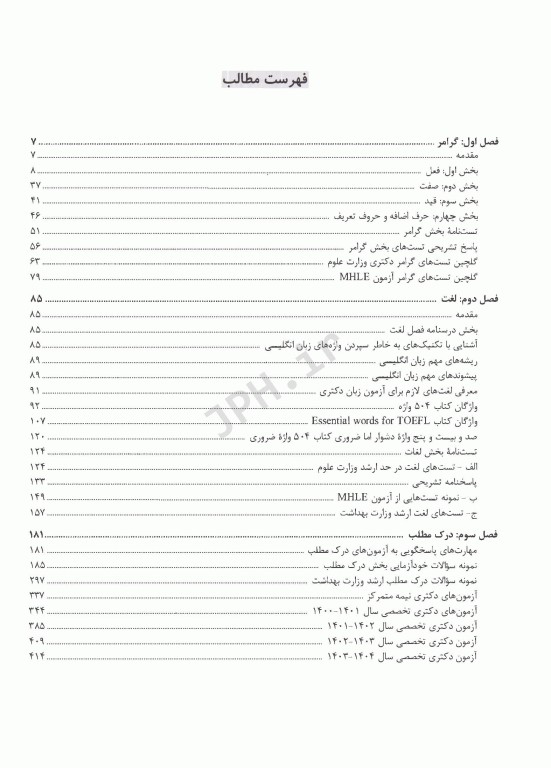 فهرست مطالب
فصل اول: گرامر ۷
مقدمه ۷
بخش اول: فعل ۸
بخش دوم: صفت ۳۷
بخش سوم: قید ۴۱
بخش چهارم: حرف اضافه و حروف تعریف ۴۶
تست‌نامهٔ بخش گرامر ۵۱
پاسخ تشریحی تست‌های بخش گرامر ۵۶
گلچین تست‌های گرامر دکتری وزارت علوم ۶۳
گلچین تست‌های گرامر آزمون MHLE ۷۹
فصل دوم: لغت ۸۵
مقدمه ۸۵
بخش درسنامه فصل لغت ۸۵
آشنایی با تکنیک‌های به خاطر سپردن واژه‌های زبان انگلیسی ۸۵
ریشه‌های مهم زبان انگلیسی ۸۹
پیشوندهای مهم زبان انگلیسی ۸۹
معرفی لغت‌های لازم برای آزمون زبان دکتری ۹۱
واژگان کتاب ۵۰۴ واژه ۹۲
واژگان کتاب Essential words for TOEFL ۱۰۷
صد و بیست و پنج واژهٔ دشوار اما ضروری کتاب ۵۰۴ واژهٔ ضروری ۱۲۰
تست‌نامهٔ بخش لغات ۱۲۴
الف - تست‌های لغت در حد ارشد وزارت علوم ۱۲۴
پاسخنامه تشریحی ۱۳۳
ب - نمونه تست‌هایی از آزمون MHLE ۱۴۹
ج- تست‌های لغت ارشد وزارت بهداشت ۱۵۷
فصل سوم: درک مطلب ۱۸۱
مهارت‌های پاسخگویی به آزمون‌های درک مطلب ۱۸۱
نمونه سؤالات خودآزمایی بخش درک مطلب ۱۸۵
نمونه سؤالات درک مطلب ارشد وزارت بهداشت ۲۹۷
آزمون‌های دکتری نیمه متمرکز ۳۳۷
آزمون‌های دکتری تخصصی سال ۱۴۰۱-۱۴۰۰ ۳۴۴
آزمون دکتری تخصصی سال ۱۴۰۲-۱۴۰۱ ۳۸۵
آزمون دکتری تخصصی سال ۱۴۰۳-۱۴۰۲ ۴۰۹
آزمون دکتری تخصصی سال ۱۴۰۴-۱۴۰۳ ۴۱۴
JPH.ir